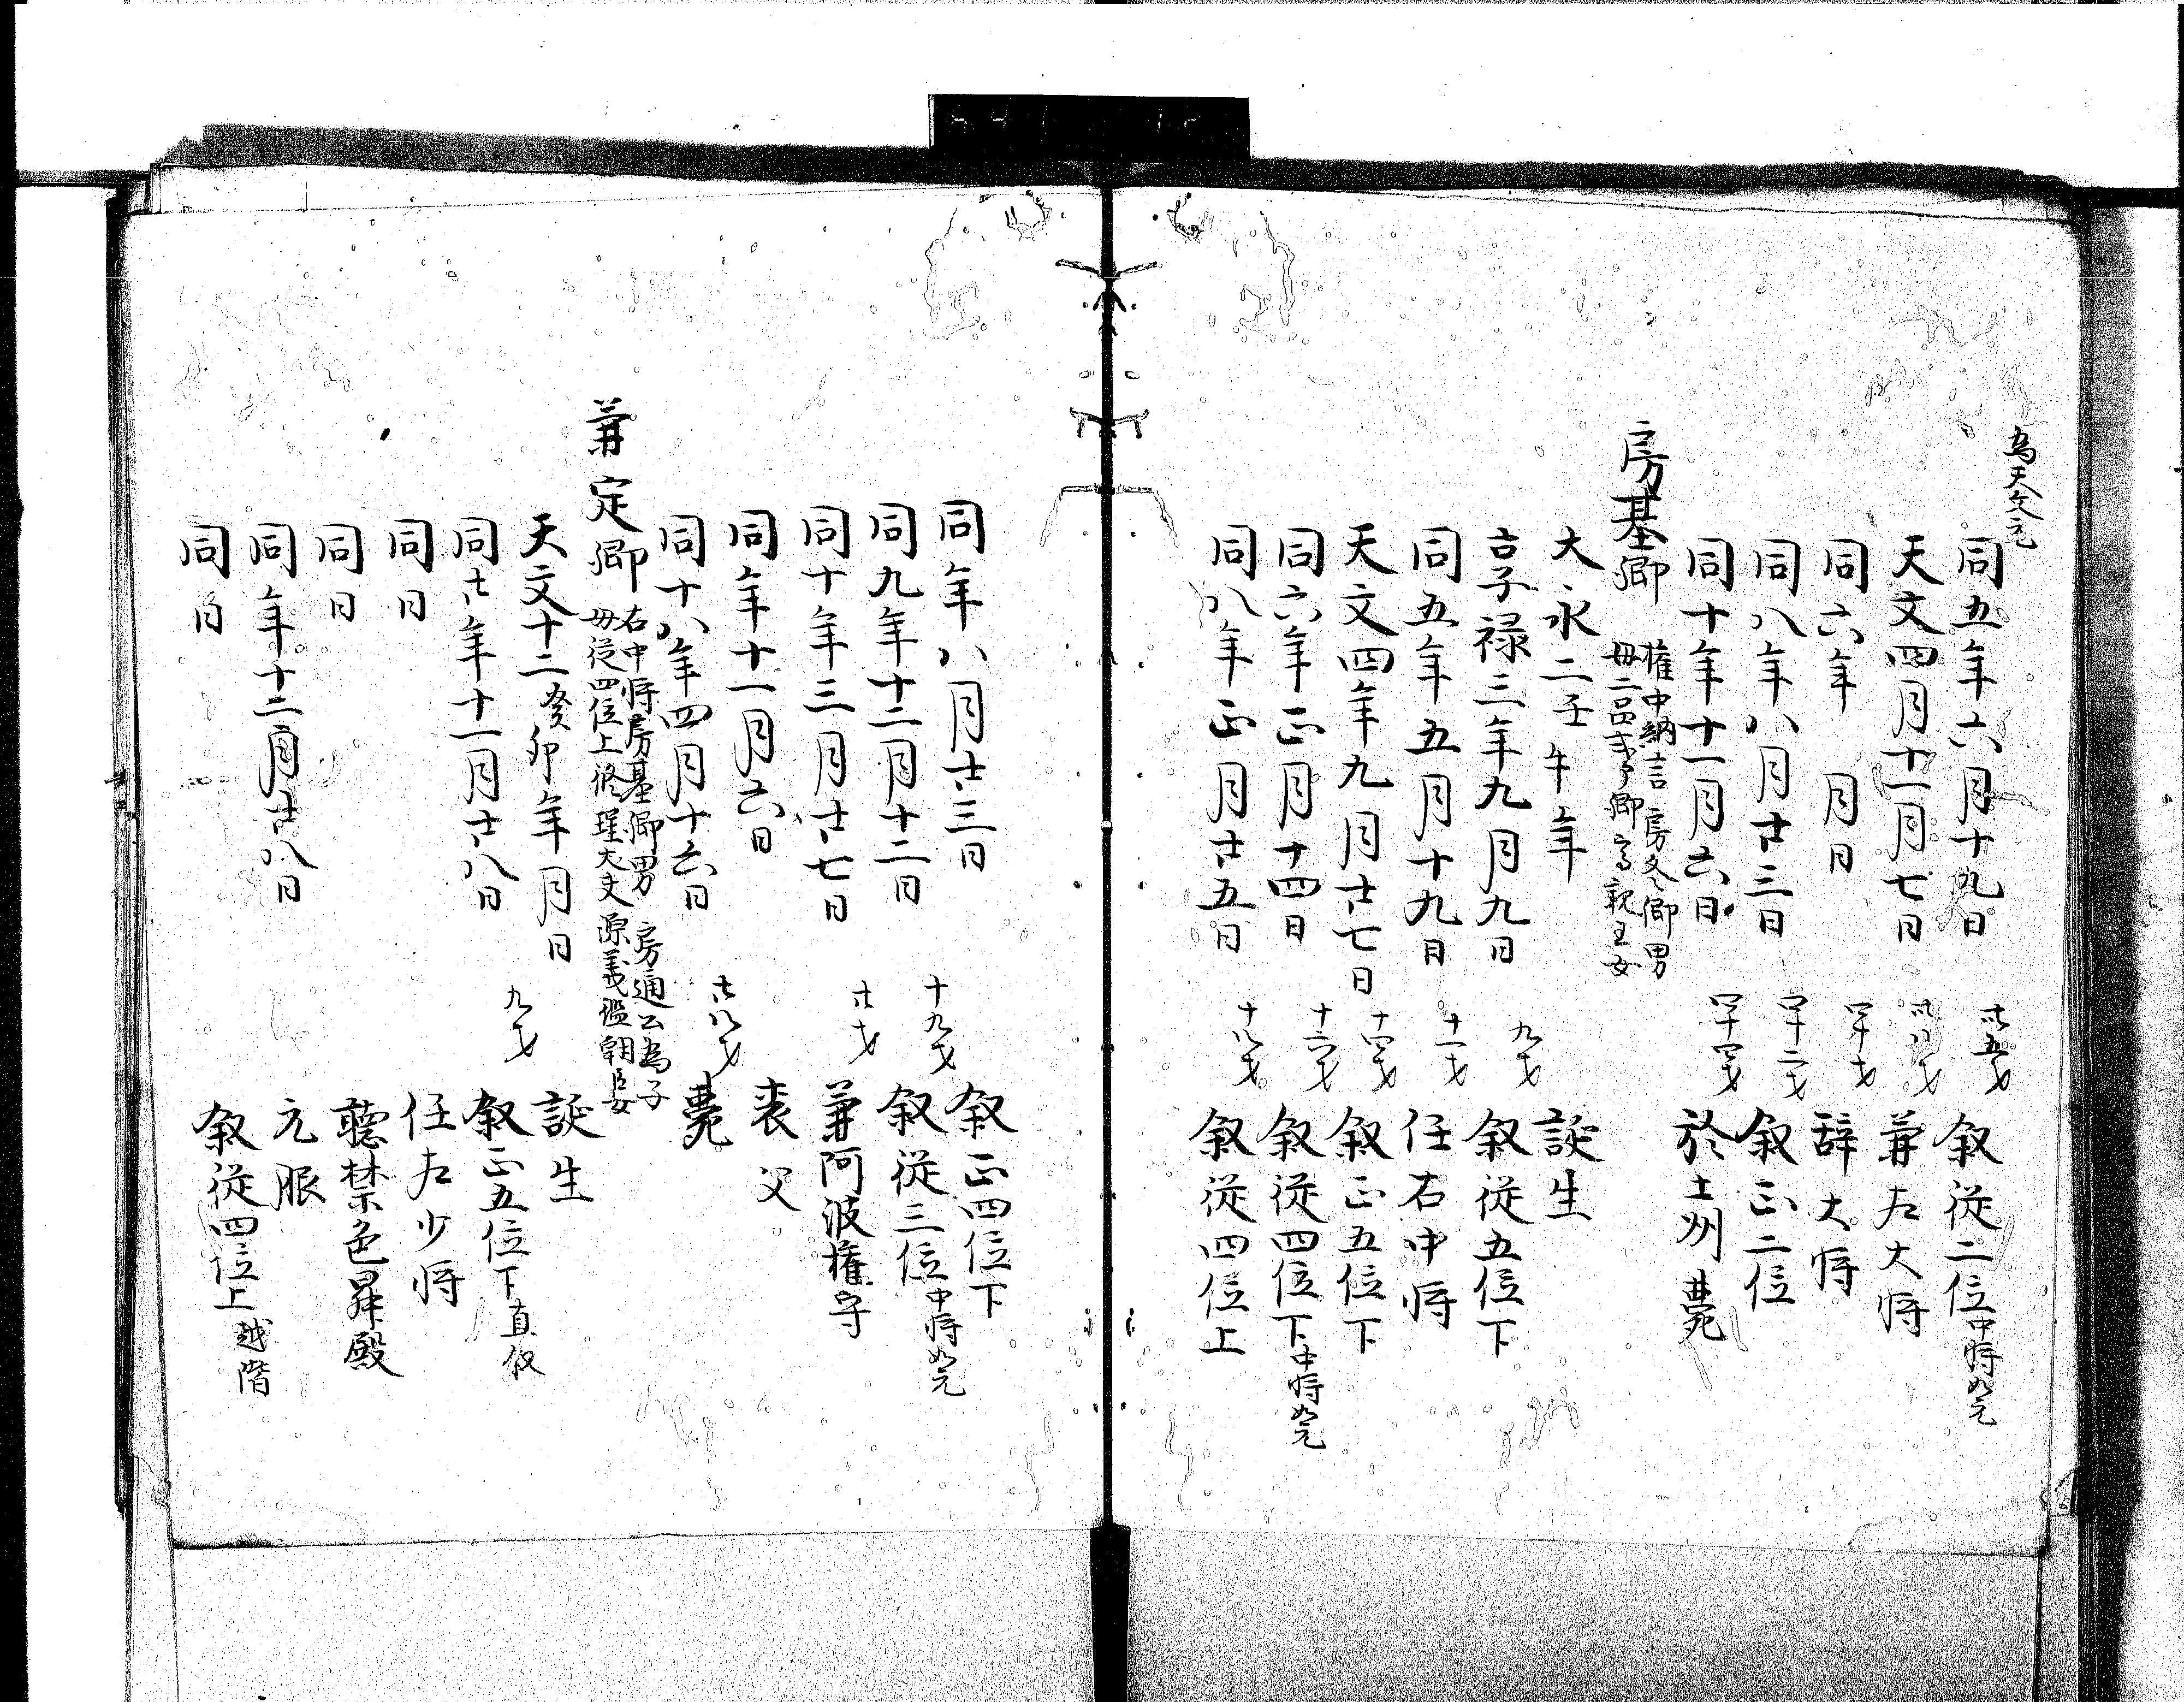 為天文元
同五年六月十九日 卅五才 叙従二位中将如元
天文四月十一月七日 卅八才 兼左大将
同六年 月 日 四十才 辞大将
同八年八月廿三日 四十二才 叙正二位
同十年十一月六日 四十四才 於土州薨
房基卿 権中納言房冬卿男
母二品 卿 親王女
大永二壬午年 誕生
享禄三年九月九日 九才 叙従五位下
同五年五月十九日 十一才 任右中将
天文四年九月廿七日 十四才 叙正五位下
同六年正月十四日 十六才 叙従四位下中将如元
同八年正月廿五日 十八才 叙従四位上
同年八月廿三日 叙正四位下
同九年十二月十二日 十九才 叙従三位中将如元
同十年三月廿七日 廿才 兼阿波権守
同年十一月六日 喪父
同十八年四月十六日 廿八才 薨
兼定卿 右中将房基卿男 房通公為子
母従四位上修理大夫源義鑑朝臣女
天文十二癸卯年 月 日 誕生
同廿年十一月廿八日 九才 叙正五位下直叙
同日 任左少将
同日 聴禁色昇殿
同年十二月廿八日 元服
同日 叙従四位上越階